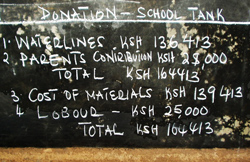 DONATION - SCHOOL TANK
1. WATERLINES KSH 136,413
2. PARENTS CONTRIBUTION KSH 28,000
TOTAL KSH 164413
3. COST OF MATERIALS KSH 139413
4. LOBOUR - KSH 25,000
TOTAL KSH 164,413